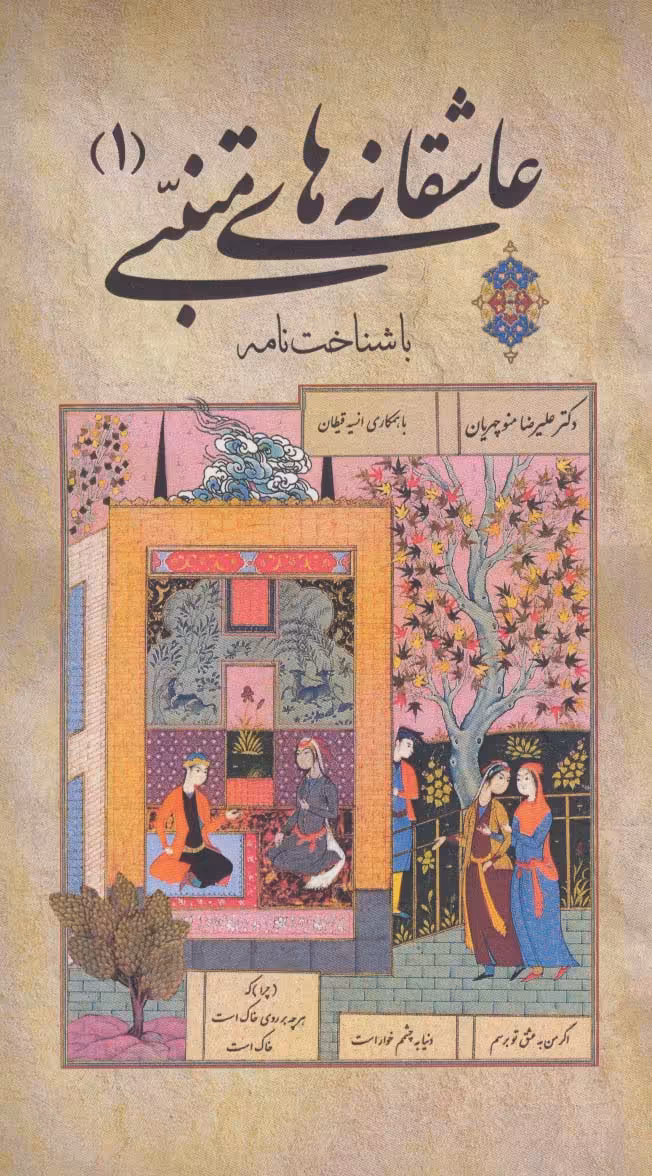 عاشقانه های متنبّی (۱)
با شناخت نامه
دکتر علیرضا منوچهریان
با همکاری انسیه قیطان
اگر من به عشق تو برسم
دنیا به چشمم خوار است
(چرا) که
هرچه بر روی خاک است
خاک است